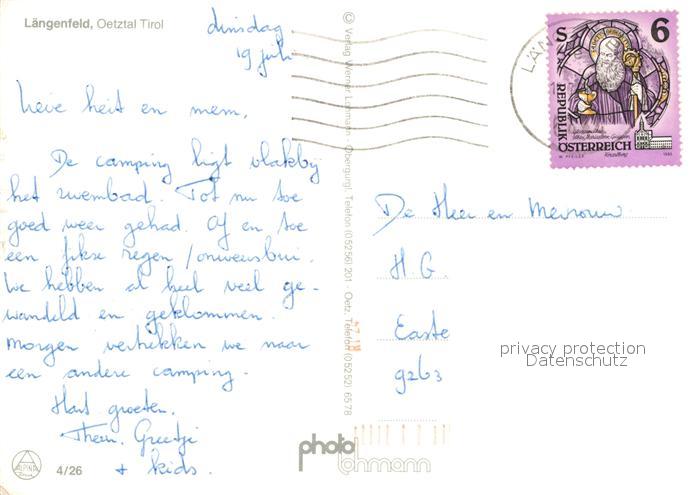 Längenfeld, Oetztal Tirol
dinsdag
19 juli
Lieve heit en mem,
De camping ligt vlakbij
het zwembad. Tot nu toe
goed weer gehad. Af en toe
een fikse regen/onweersbui.
We hebben al heel veel ge-
wandeld en geklommen.
Morgen vertrekken we naar
een andere camping.
Hart. groeten,
Theun, Greetje
+ kids.
ALPINA
4/26
© Verlag Werner Lohmann, Obergurgl, Telefon (05256) 201 · Oetz, Telefon (05252) 6578
photo
lohmann
LÄN
S 6
REPUBLIK
ÖSTERREICH
De Heer en Mevrouw
H.G.
Easte
9263
privacy protection
Datenschutz